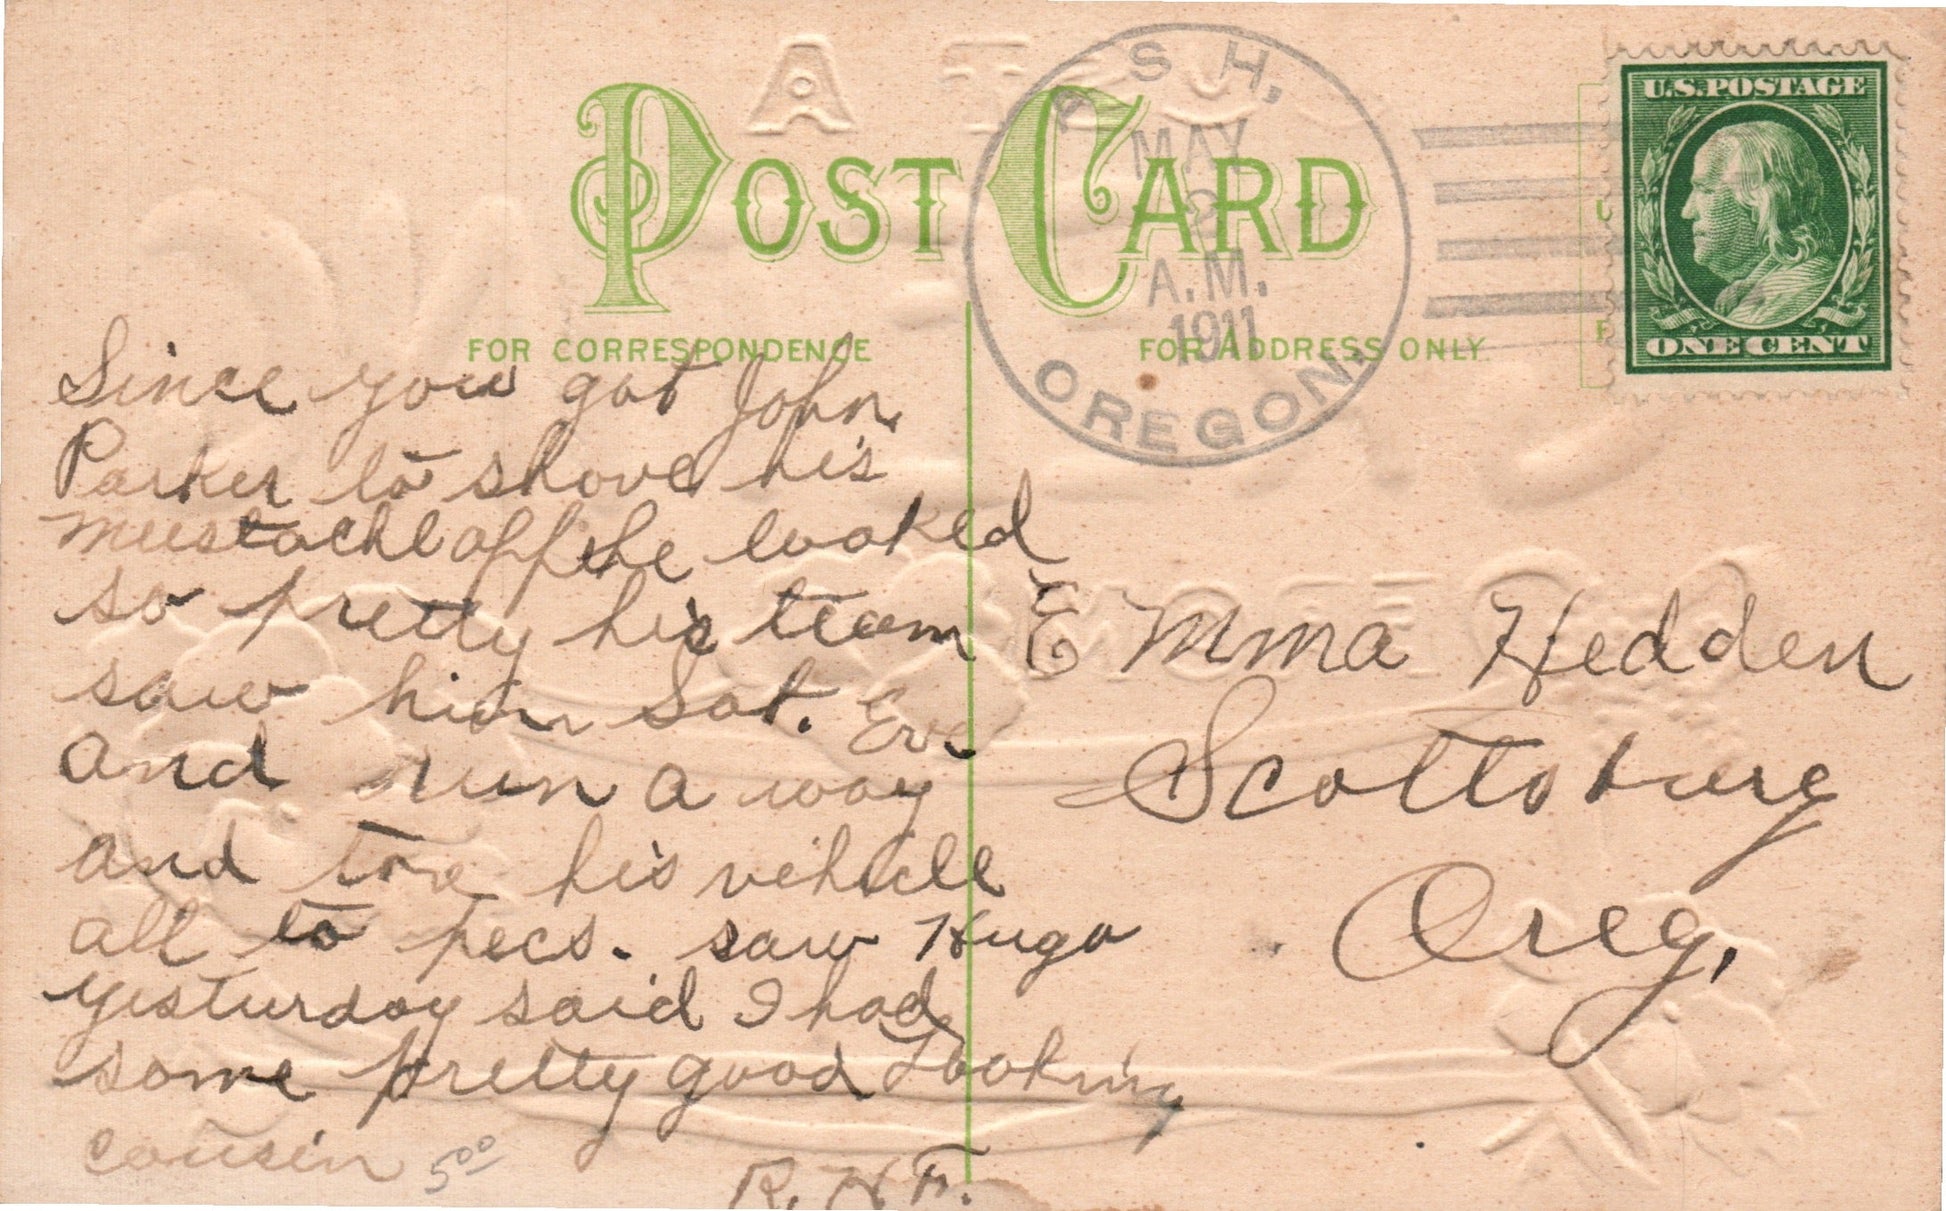 POST CARD
FOR CORRESPONDENCE
FOR ADDRESS ONLY
ASH,
MAY
2
A.M.
1911
OREGON.
U.S. POSTAGE
ONE CENT
Since you got John
Parker to shove his
mustache off he looked
so pretty his team
saw him Sat. Eve
and run a way
and tore his vehicle
all to pecs. saw Hugo
yesturday said I had
some pretty good looking
cousin
5 00
R. H F.
Emma Hedden
Scottsburg
Oreg,